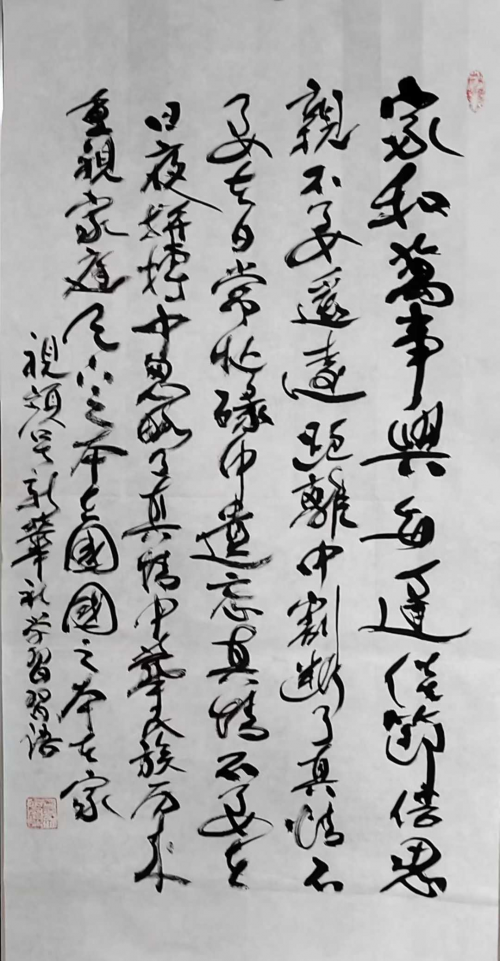 家和萬事興每逢佳節倍思
親不要遥遠距離中割断了真情不
要在日常忙碌中遺忘真情不要在
日夜拼搏中忽略了真情中華民族历来
重視家庭天下之本在國國之本在家
視頻号新華社学習習語